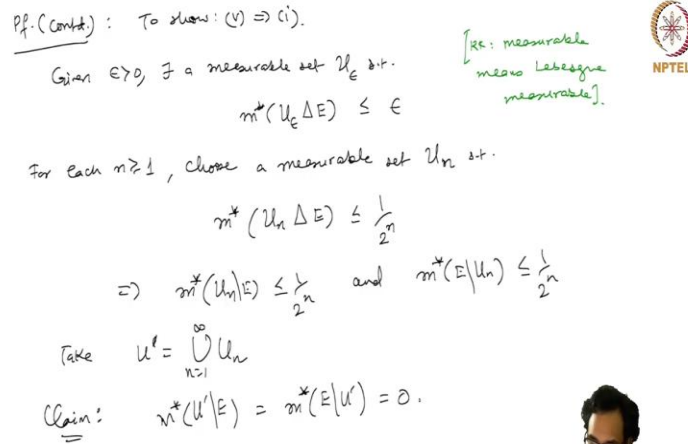 Pf. (contd.) : To show : (v) => (i).
[RK: measurable
means Lebesgue
measurable].
NPTEL
Given ε>0, ∃ a measurable set U_ε s.t.
m*(U_ε Δ E) ≤ ε
For each n≥1, choose a measurable set U_n s.t.
m*(U_n Δ E) ≤ 1/2^n
=> m*(U_n\E) ≤ 1/2^n and m*(E\U_n) ≤ 1/2^n
Take U' = ⋃_{n=1}^∞ U_n
Claim: m*(U'\E) = m*(E\U') = 0.